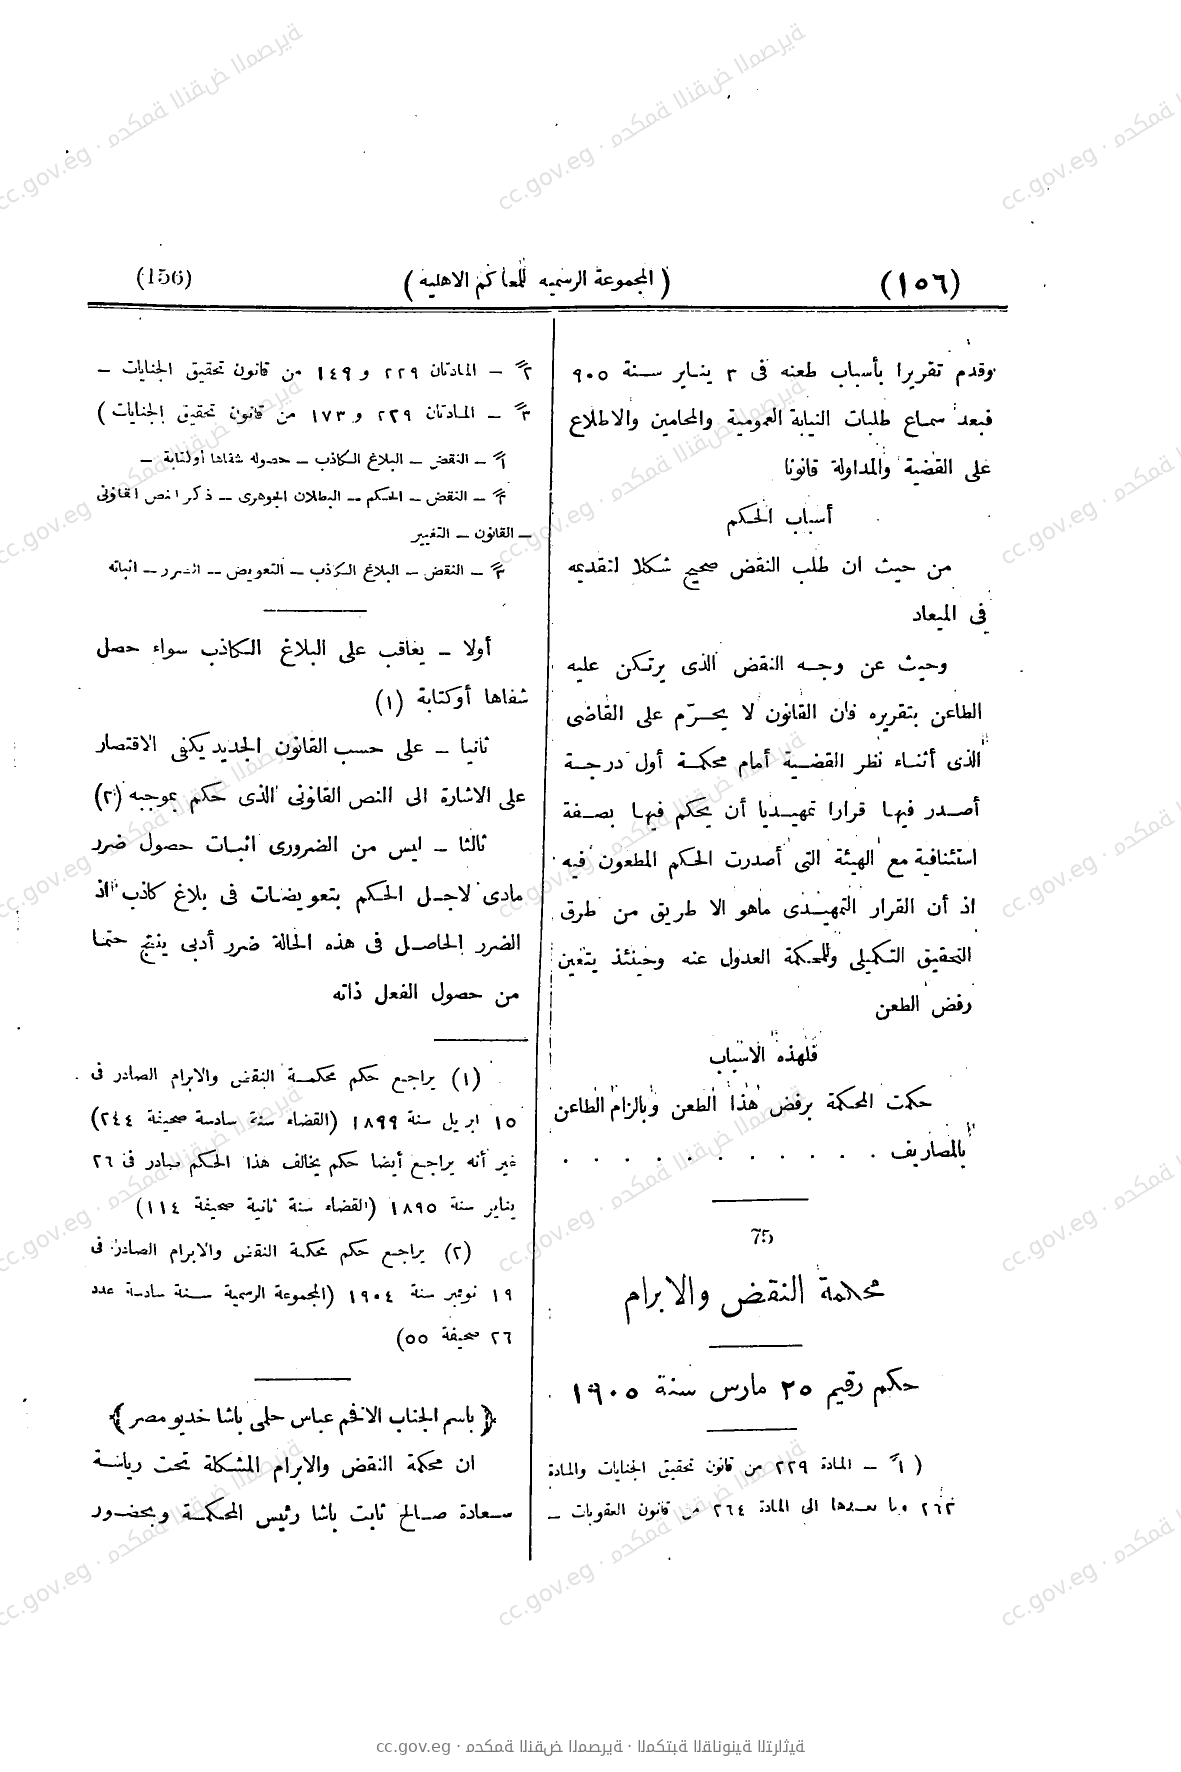 (١٥٦)
(المجموعة الرسميه للمحاكم الاهليه)
(156)
وقدم تقريرا بأسباب طعنه فى ٣ يناير سنة ٩٠٥
فبعد سماع طلبات النيابة العمومية والمحامين والاطلاع
على القضية والمداولة قانونا
أسباب الحكم
من حيث ان طلب النقض صحيح شكلا لتقديمه
فى الميعاد
وحيث عن وجه النقض الذى يرتكن عليه
الطاعن بتقريره فان القانون لا يحرّم على القاضى
الذى أثناء نظر القضية أمام محكمة أول درجة
أصدر فيها قرارا تمهيديا أن يحكم فيها بصفة
استئنافية مع الهيئة التى أصدرت الحكم المطعون فيه
اذ أن القرار التمهيدى ماهو الا طريق من طرق
التحقيق التكميلى وللمحكمة العدول عنه وحينئذ يتعين
رفض الطعن
فلهذه الاسباب
حكمت المحكمة برفض هذا الطعن وبالزام الطاعن
بالمصاريف . . . . . . . . . . .
75
محكمة النقض والابرام
حكم رقيم ٢٥ مارس سنة ١٩٠٥
(١ً – المادة ٢٢٩ من قانون تحقيق الجنايات والمادة
٢٦٢ وما بعدها الى المادة ٢٦٤ من قانون العقوبات –
٢ً – المادتان ٢٢٩ و ١٤٩ من قانون تحقيق الجنايات –
٣ً – المادتان ٢٢٩ و ١٧٣ من قانون تحقيق الجنايات)
١ً – النقض – البلاغ الكاذب – حصوله شفاها أو كتابة –
٢ً – النقض – الحكم – البطلان الجوهرى – ذكر النص القانونى
– القانون – التغيير
٣ً – النقض – البلاغ الكاذب – التعويض – الضرر – اثباته
أولا – يعاقب على البلاغ الكاذب سواء حصل
شفاها أو كتابة (١)
ثانيا – على حسب القانون الجديد يكفى الاقتصار
على الاشارة الى النص القانونى الذى حكم بموجبه (٢)
ثالثا – ليس من الضرورى اثبات حصول ضرر
مادى لاجل الحكم بتعويضات فى بلاغ كاذب اذ
الضرر الحاصل فى هذه الحالة ضرر أدبى ينتج حتما
من حصول الفعل ذاته
(١) يراجع حكم محكمة النقض والابرام الصادر فى
١٥ ابريل سنة ١٨٩٩ (القضاء سنة سادسة صحيفة ٢٤٤)
غير أنه يراجع أيضا حكم يخالف هذا الحكم صادر فى ٢٦
يناير سنة ١٨٩٥ (القضاء سنة ثانية صحيفة ١١٤)
(٢) يراجع حكم محكمة النقض والابرام الصادر فى
١٩ نوفمبر سنة ١٩٠٤ (المجموعة الرسمية سنة سادسة عدد
٢٦ صحيفة ٥٥)
﴿باسم الجناب الافخم عباس حلمى باشا خديو مصر﴾
ان محكمة النقض والابرام المشكلة تحت رياسة
سعادة صالح ثابت باشا رئيس المحكمة وبحضور
cc.gov.eg · محكمة النقض المصرية · المكتبة القانونية التراثية